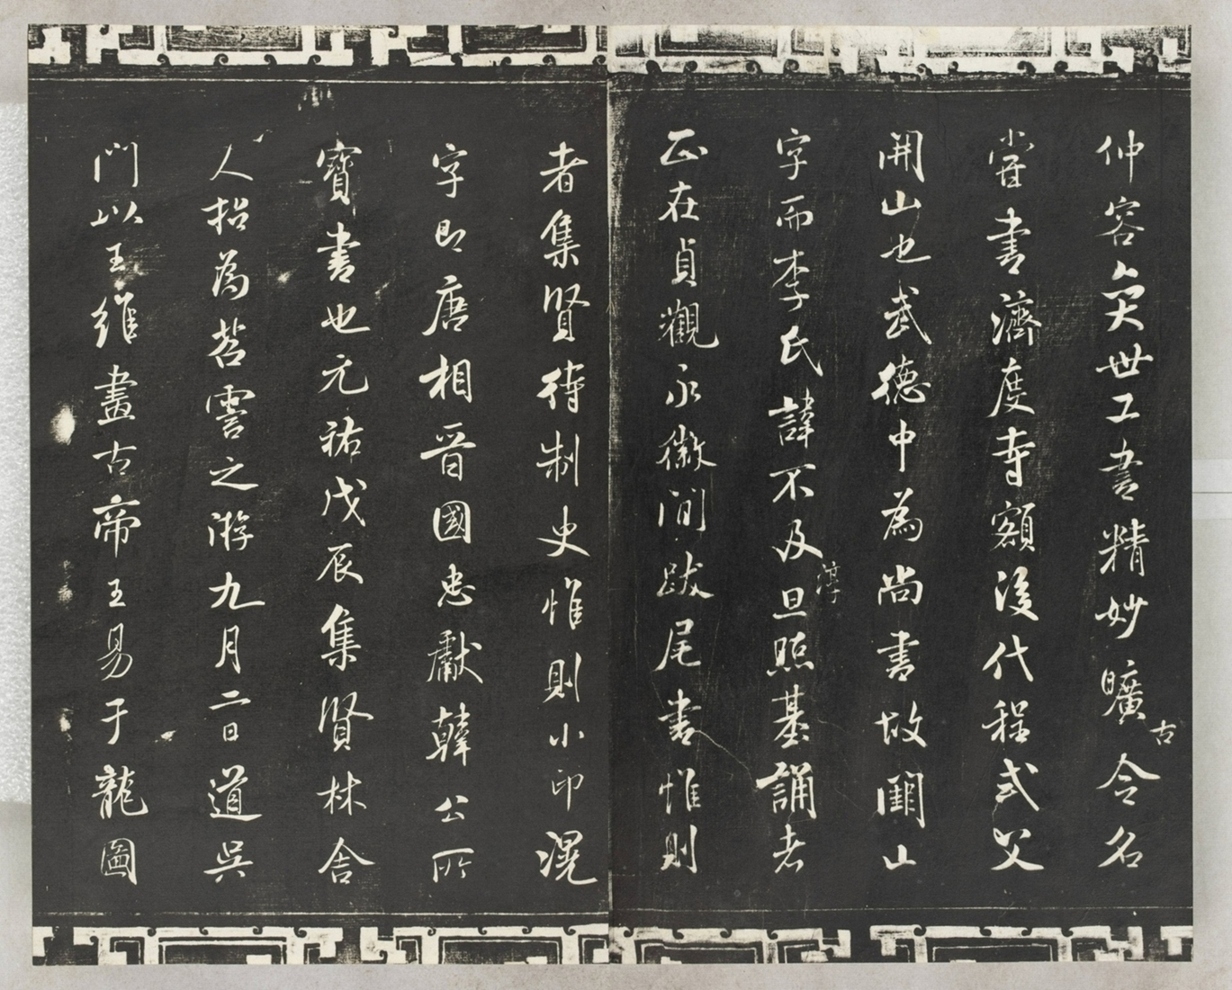 仲容奕世工書精妙曠古令名
嘗書濟度寺額後代程式父
開山也武德中為尚書故闕山
字而李氏諱不及淳旦照基誦者
正在貞觀永徽間跋尾書惟則
者集賢待制史惟則小印滉
字即唐相晉國忠獻韓公所
寶書也元祐戊辰集賢林舍
人招為苕霅之游九月二日道吳
門以王維畫古帝王易于龍圖